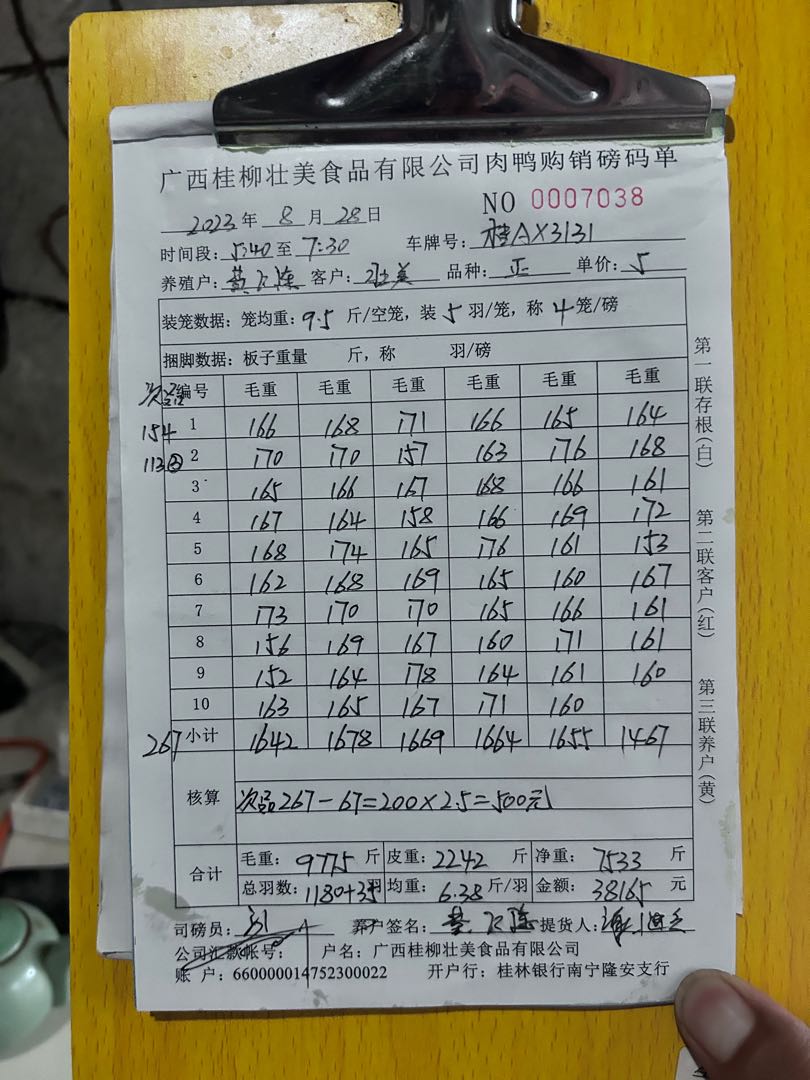 广西桂柳壮美食品有限公司肉鸭购销磅码单
NO 0007038
2023年 8 月 28 日
时间段: 5:40 至 7:30 车牌号: 桂AX3131
养殖户: 黄 客户: 壮美 品种: 正 单价: 5
装笼数据: 笼均重: 9.5 斤/空笼, 装 5 羽/笼, 称 4 笼/磅
捆脚数据: 板子重量 斤, 称 羽/磅
次品 编号 毛重 毛重 毛重 毛重 毛重 毛重
154 1 166 168 171 166 165 164
113 2 170 170 157 163 176 168
3 165 166 167 168 166 161
4 167 164 158 166 169 172
5 168 174 165 176 161 153
6 162 168 169 165 160 167
7 173 170 170 165 166 161
8 156 169 167 160 171 161
9 152 164 178 164 161 160
10 163 165 167 171 160
267 小计 1642 1678 1669 1664 1655 1467
核算 次品267-67=200×2.5=500元
合计 毛重: 9775 斤 皮重: 2242 斤 净重: 7533 斤
总羽数: 1180+35 羽 均重: 6.38 斤/羽 金额: 38165 元
司磅员: 养户签名: 黄 提货人:
公司汇款帐号: 户名: 广西桂柳壮美食品有限公司
账 户: 660000014752300022 开户行: 桂林银行南宁隆安支行
第一联存根(白)
第二联客户(红)
第三联养户(黄)